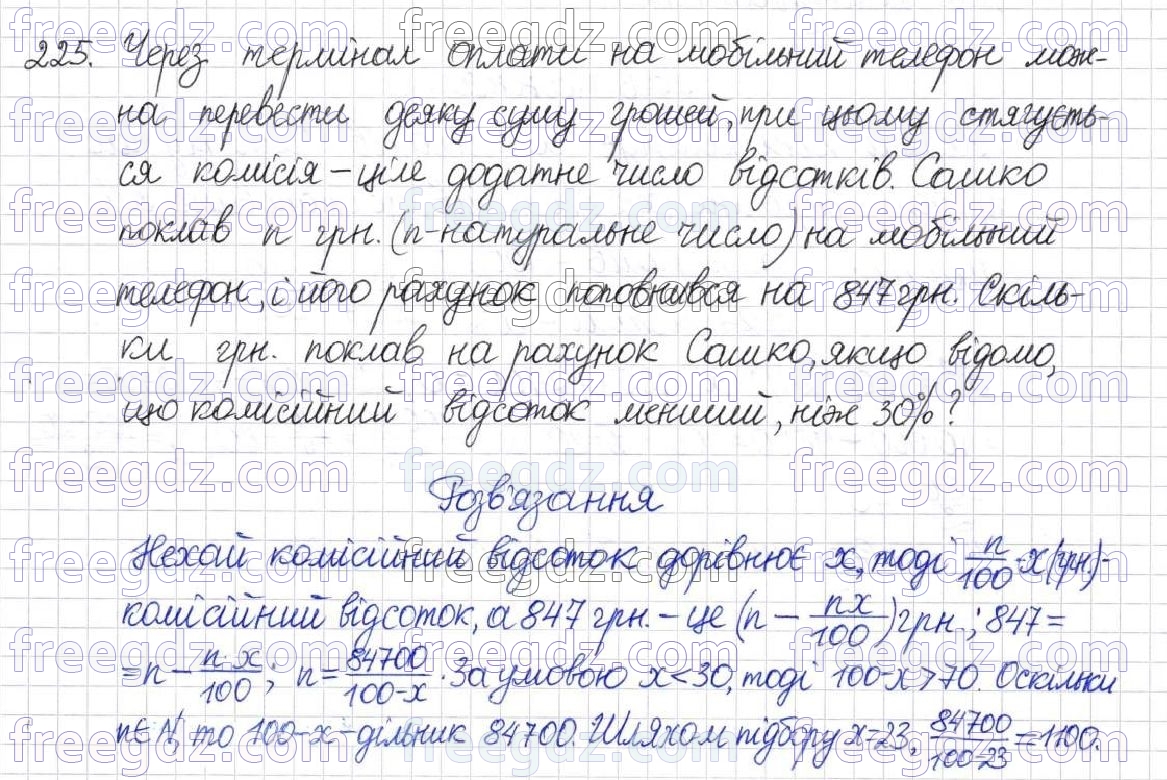 225. Через термінал оплати на мобільний телефон мож-
на перевести деяку суму грошей, при цьому стягуєть-
ся комісія – ціле додатне число відсотків. Сашко
поклав n грн. (n-натуральне число) на мобільний
телефон, і його рахунок поповнився на 847 грн. Скіль-
ки грн. поклав на рахунок Сашко, якщо відомо,
що комісійний відсоток менший, ніж 30%?
Розв'язання
Нехай комісійний відсоток дорівнює x, тоді n/100·x (грн.)-
комісійний відсоток, а 847 грн. – це (n – nx/100) грн.; 847 =
= n – n·x/100; n = 84700/100-x. За умовою x < 30, тоді 100-x > 70. Оскільки
n∈N, то 100-x – дільник 84700. Шляхом підбору x=23, 84700/100-23 = 1100.